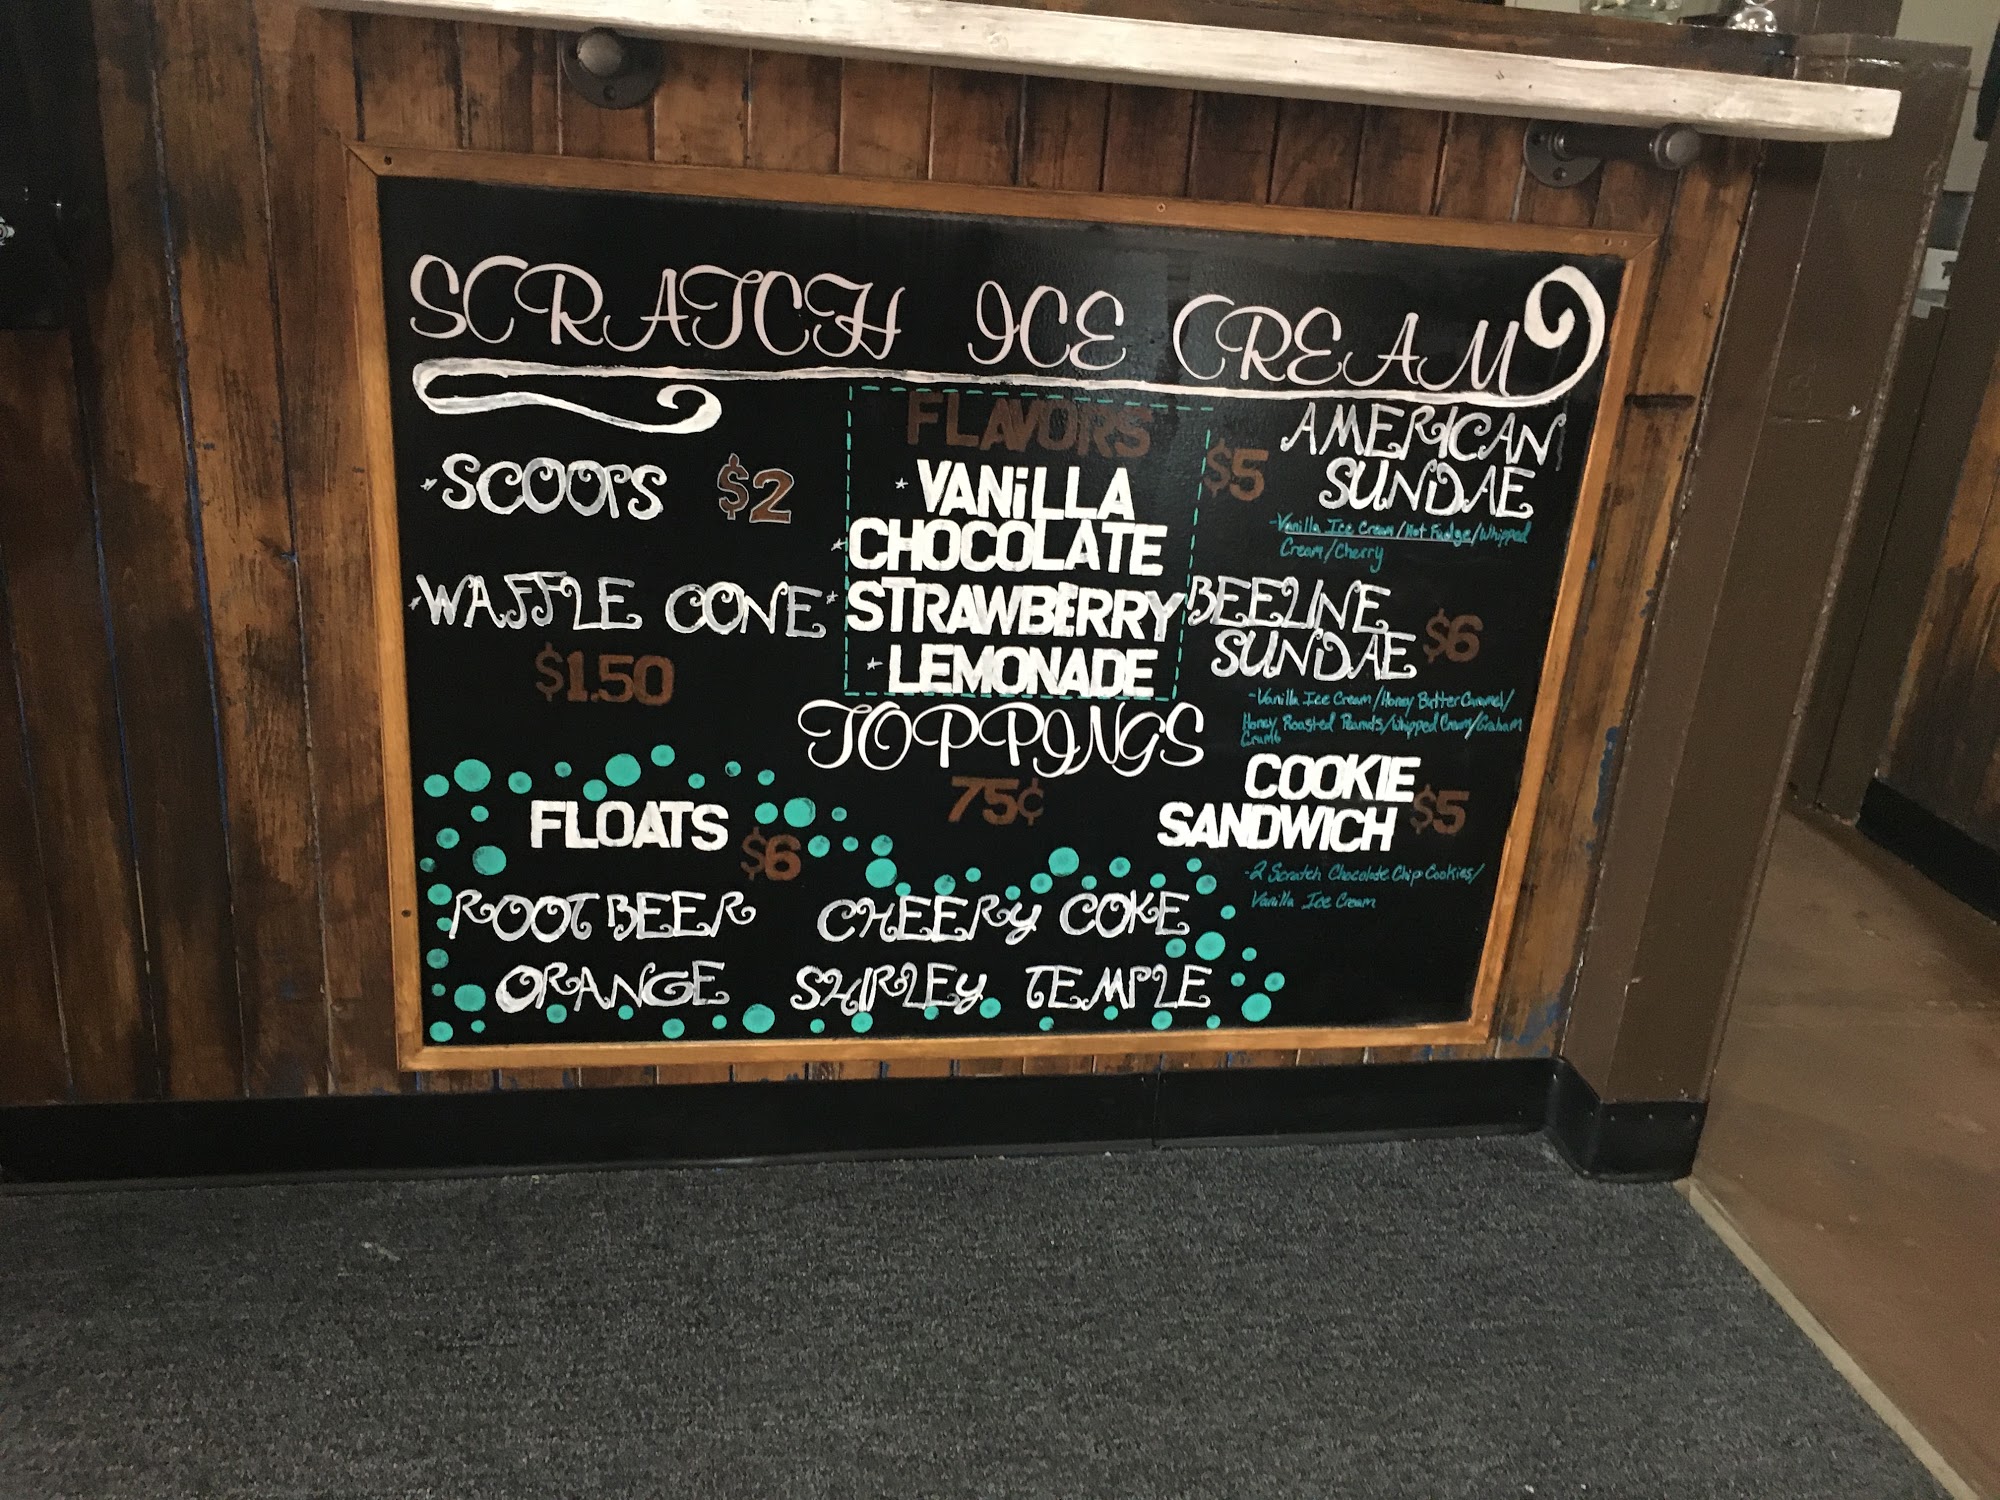 SCRATCH ICE CREAM
*SCOOPS $2
*WAFFLE CONE
$1.50
FLAVORS
*VANiLLA
*CHOCOLATE
*STRAWBERRY
*LEMONADE
TOPPINGS
75¢
$5 AMERICAN
SUNDAE
-Vanilla Ice Cream/Hot Fudge/Whipped
Cream/Cherry
BEELINE
SUNDAE $6
-Vanilla Ice Cream/Honey Butter Caramel/
Honey Roasted Peanuts/Whipped Cream/Graham
Crumb
COOKIE
SANDWICH $5
-2 Scratch Chocolate Chip Cookies/
Vanilla Ice Cream
FLOATS $6
ROOT BEER CHEERY COKE
ORANGE SHIRLEY TEMPLE